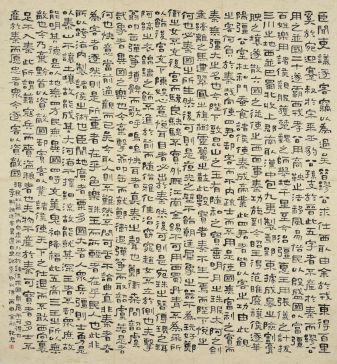 臣聞吏議逐客竊以為過矣昔繆公求士西取由余於戎東得百里
奚於宛迎蹇叔於宋來丕豹公孫支於晉此五子者不產於秦而繆公
用之并國二十遂霸西戎孝公用商鞅之法移風易俗民以殷盛國以富彊
百姓樂用諸侯親服獲楚魏之師舉地千里至今治彊惠王用張儀之計拔
三川之地西并巴蜀北收上郡南取漢中包九夷制鄢郢東據成皋之險割膏
腴之壤遂散六國之從使之西面事秦功施到今昭王得范雎廢穰侯逐華
陽彊公室杜私門蠶食諸侯使秦成帝業此四君者皆以客之功由此觀
之客何負於秦哉向使四君卻客而不內疏士而不用是使國無富利之實而
秦無彊大之名也今陛下致昆山之玉有隨和之寶垂明月之珠服太阿之劍
乘纖離之馬建翠鳳之旗樹靈鼉之鼓此數寶者秦不生一焉而陛下說之何也
必秦國之所生然後可則是夜光之璧不飾朝廷犀象之器不為玩好鄭
衛之女不充後宮而駿良駃騠不實外廄江南金錫不為用西蜀丹青不為采所
以飾後宮充下陳娛心意說耳目者必出於秦然後可則是宛珠之簪傅璣之珥
阿縞之衣錦繡之飾不進於前而隨俗雅化佳冶窈窕趙女不立於側也夫擊甕叩
缶彈箏搏髀而歌呼嗚嗚快耳者真秦之聲也鄭衛桑間韶虞
武象者異國之樂也今棄擊甕叩缶而就鄭衛退彈箏而取韶虞若是者
何也快意當前適觀而已矣今取人則不然不問可否不論曲直非秦者去
為客者逐然則是所重者在乎色樂珠玉而所輕者在乎人民也此非
所以跨海內制諸侯之術也臣聞地廣者粟多國大者人眾兵彊則士勇是
以泰山不讓土壤故能成其大河海不擇細流故能就其深王者不卻眾庶故
能明其德是以地無四方民無異國四時充美鬼神降福此五帝三王之所以無
敵也今乃棄黔首以資敵國卻賓客以業諸侯使天下之士退而不敢西向裹
足不入秦此所謂藉寇兵而齎盜糧者也夫物不產於秦可寶者多士不
產於秦而願忠者眾今逐客以資敵